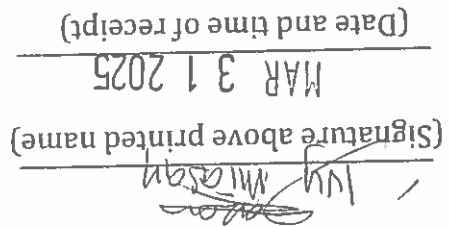 (Signature above printed name)
MAR 3 1 2025
(Date and time of receipt)